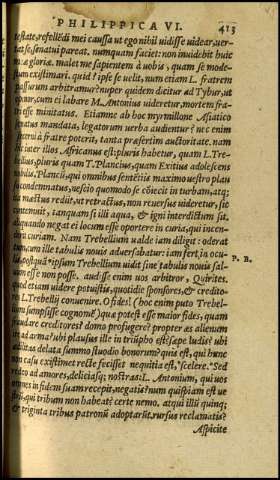 PHILIPPICA VI. 413
testate, refelledi mei caussa ut ego nihil uidisse uidear, uer-
tat se, senatui pareat. numquam faciet: non inuidebit huic
meæ gloriæ. malet me sapientem à uobis, quam se mode-
stum existimari. quid? ipse se uelit, num etiam L. fratrem
passurum arbitramur? nuper quidem dicitur ad Tybur, ut
opinor, cum ei labare M. Antonius uideretur, mortem fra-
tri esse minitatus. Etiamne ab hoc myrmillone Asiatico
senatus mandata, legatorum uerba audientur? nec enim
à fratre poterit, tanta præsertim auctoritate. nam
hic inter illos Africanus est: pluris habetur, quam L. Tre-
bellius, pluris quam T. Plancius, quam Exitius adolescens
nobilis. Plancii, qui omnibus sententiis maximo uestro plau-
su condemnatus, nescio quomodo se coiecit in turbam, atq;
ita mæstus redit, ut retractus, non reuersus uideretur, sic
contemnit, tanquam si illi aqua, & igni interdictum sit.
aliquando negat ei locum esse oportere in curia, qui incen-
derit curiam. Nam Trebellium ualde iam diligit: oderat
tum, cum ille tabulis nouis aduersabatur: iam fert, in ocu-
lis, postquã ipsum Trebellium uidit sine tabulis nouis sal- P. B.
uum esse non posse. audisse enim uos arbitror, Quirites,
quod etiam uidere potuistis, quotidie sponsores, & credito-
res L. Trebellij conuenire. O fides! (hoc enim puto Trebel-
lium sumpsisse cognomẽ) quæ potest esse maior fides, quam
fraudare creditores? domo profugere? propter æs alienum
ire ad arma? ubi plausus ille in triũpho est? sæpe ludis? ubi
ædilitas delata summo studio bonorum? quis est, qui hunc
non casu existimet recte fecisse? nequitia est, scelere. Sed
redeo ad amores, deliciasq; nostras L. Antonium, qui uos
omnes in fidem suam recepit. negatis? num quispiam est ue-
strũ, qui tribum non habeat? certe nemo. atqui illũ quinq;
& triginta tribus patronũ adoptarũt. rursus reclamatis?
Aspicite